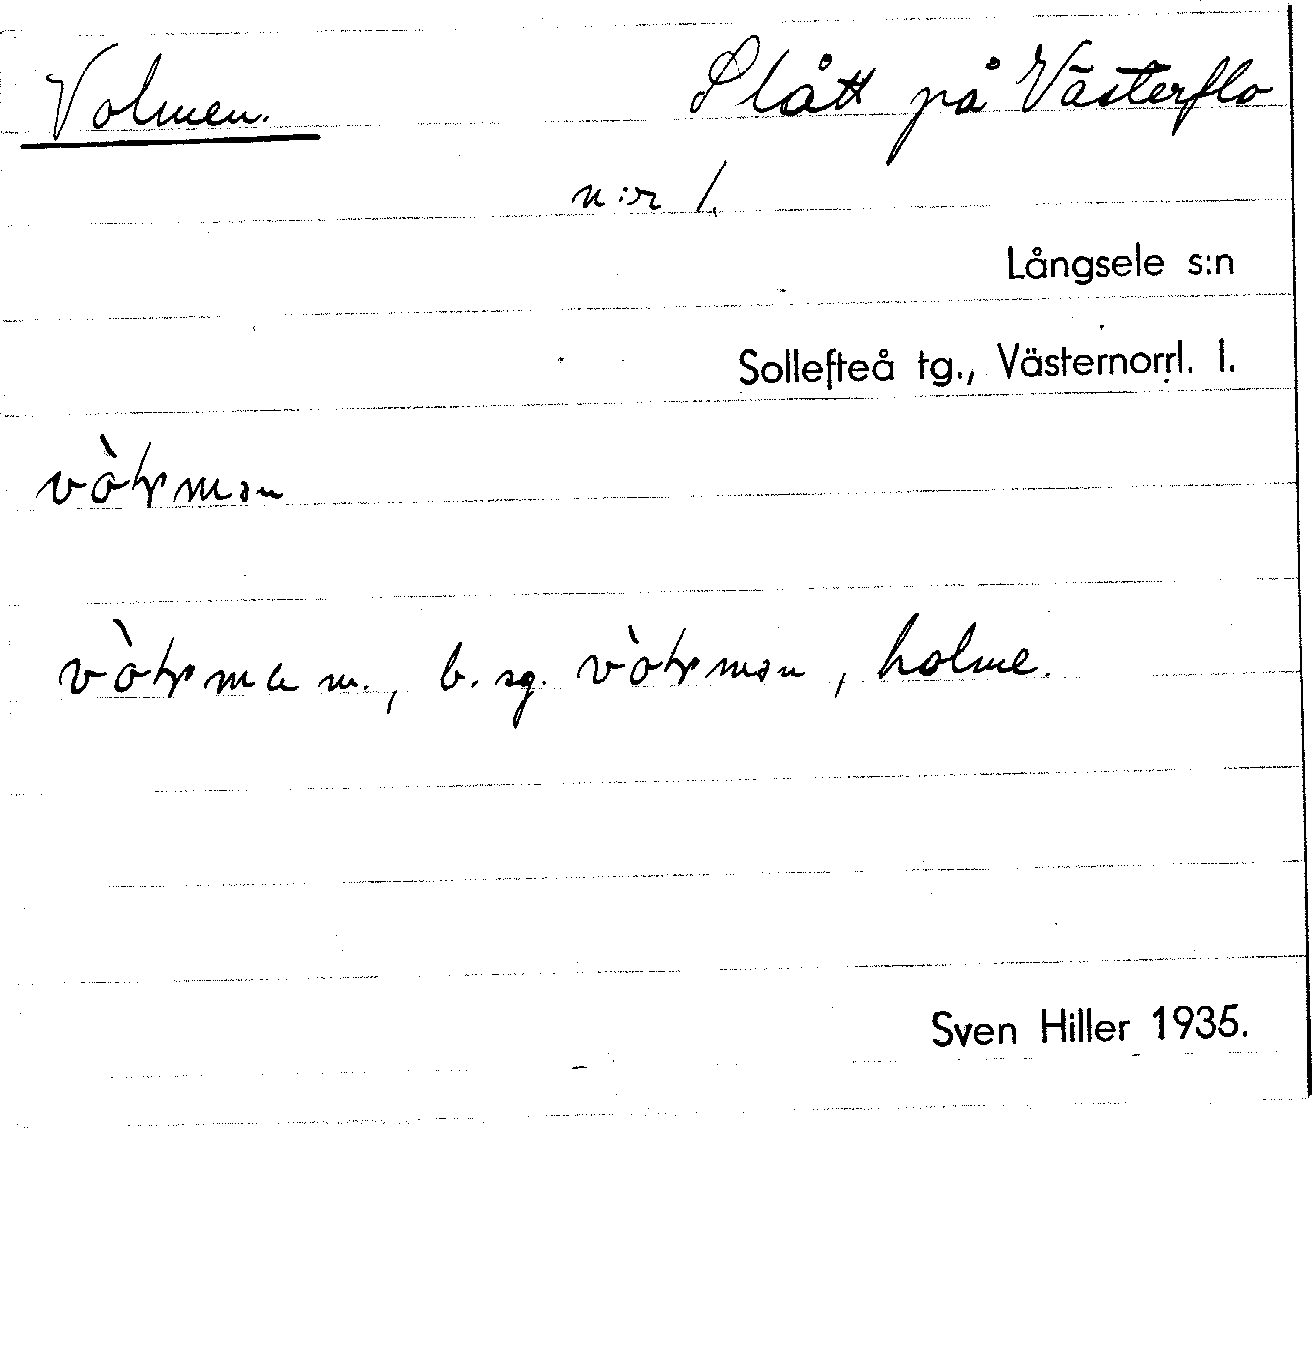 Volmen.
Slått på Västerflo
n:r 1.
Långsele s:n
Sollefteå tg., Västernorrl. l.
m., b. sg. holme.
Sven Hiller 1935.